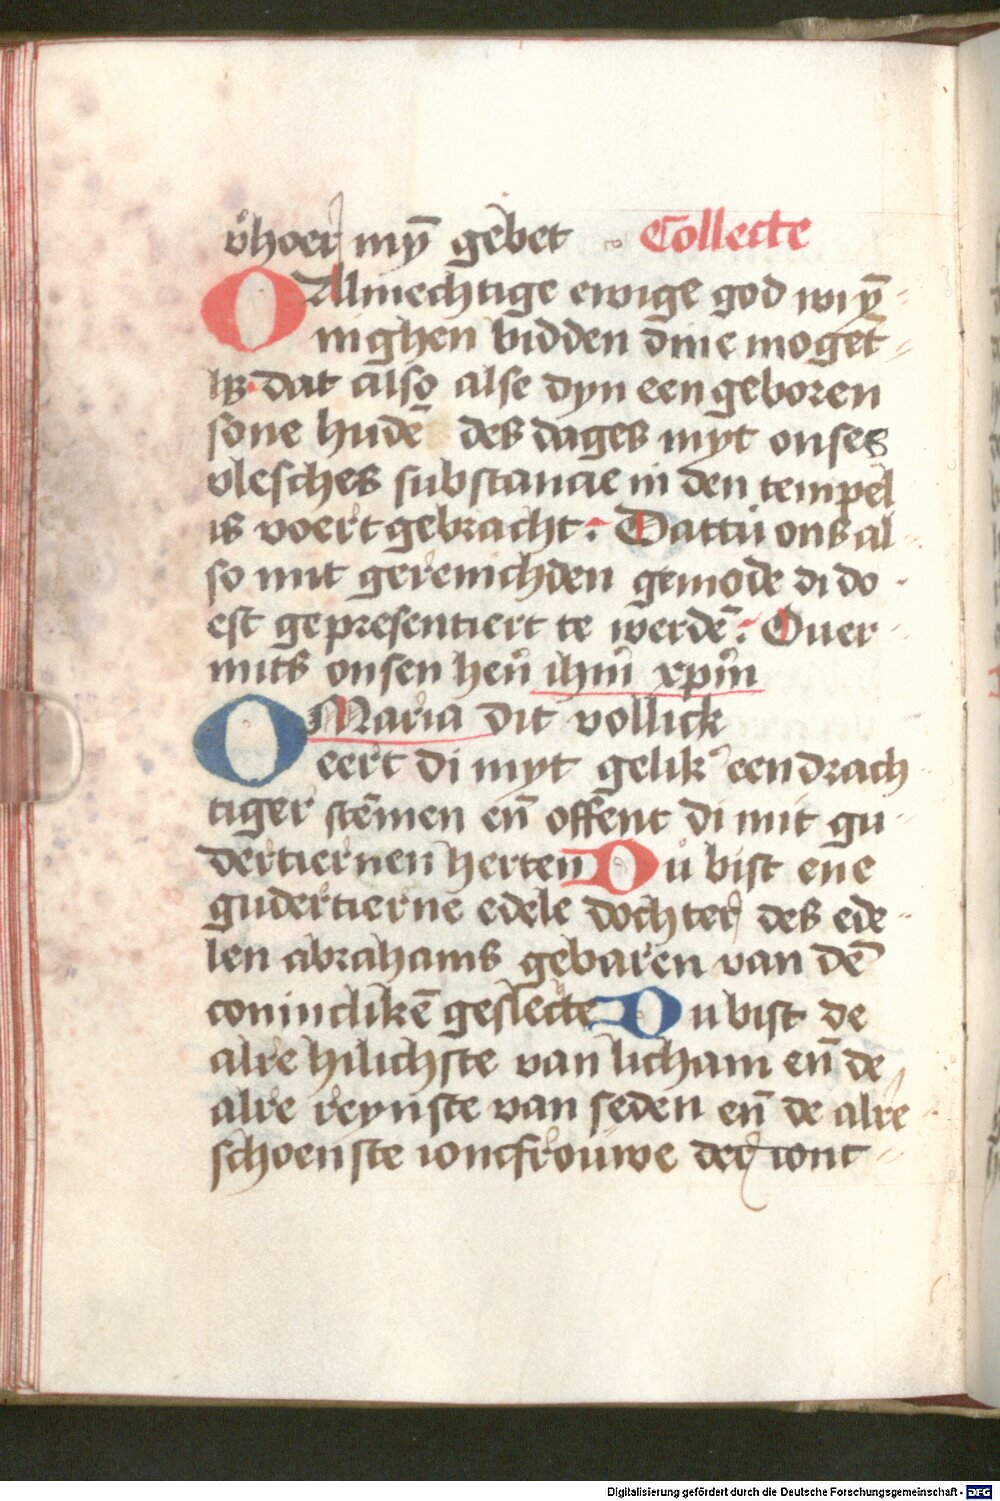 v̊hoer mȳ gebet Collecte
O Allmechtige ewige god wiȳ-
nighen bidden dine moget-
lɜ· dat also alse dyn een geboren
sone hudē des dages myt onses
vlesches substancie in den tempel
is voert gebracht: Dattu ons al-
so mit gereinichden gemode di do-
est gepresentiert te werdē: Ouer-
mits onsen heñ ihm̄ xpm̄
O Maria dit vollick
eert di myt gelik eendrach-
tiger stēmen eñ offent di mit gu-
dertiernen herten Du bist ene
gudertierne edele dochter des ede-
len abrahams gebaren van dē
conincklikē geslecte Du bist de
alre hilichste van licham eñ de
alre reynste van seden eñ de alre
schoenste ioncfrouwe der comt-
Digitalisierung gefördert durch die Deutsche Forschungsgemeinschaft - DFG